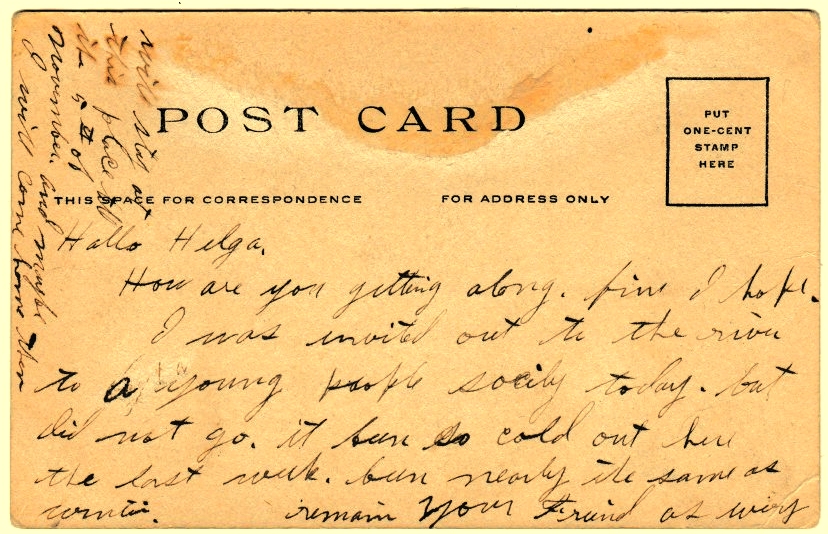 POST CARD
PUT
ONE-CENT
STAMP
HERE
THIS SPACE FOR CORRESPONDENCE
FOR ADDRESS ONLY
Hallo Helga,
How are you getting along. fine I hope.
I was invited out to the river
to a young people socily today. but
did not go. it bun so cold out here
the last week. bun nearly the same as
winter. remain Your Friend as wery
will stat at
this place till
it 5 th of
November and maybe
I will come home then